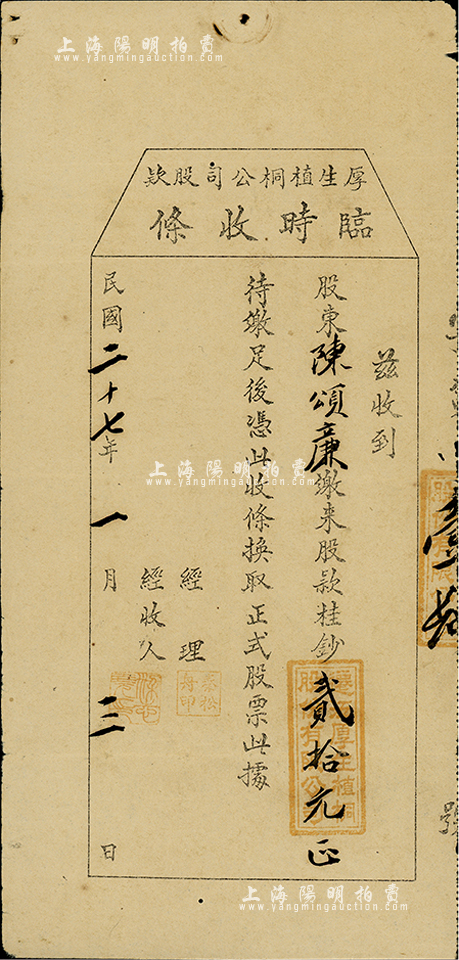 上海陽明拍賣
www.yangmingauction.com
厚生植桐公司股欵
臨時收條
茲收到
股東陳頌廉繳来股款桂鈔貳拾元正
待繳足後憑此收條換取正式股票此據
經理
經收人
民國二十七年一月三日
壹拾
號
上海陽明拍賣
www.yangmingauction.com
上海陽明拍賣
www.yangmingauction.com